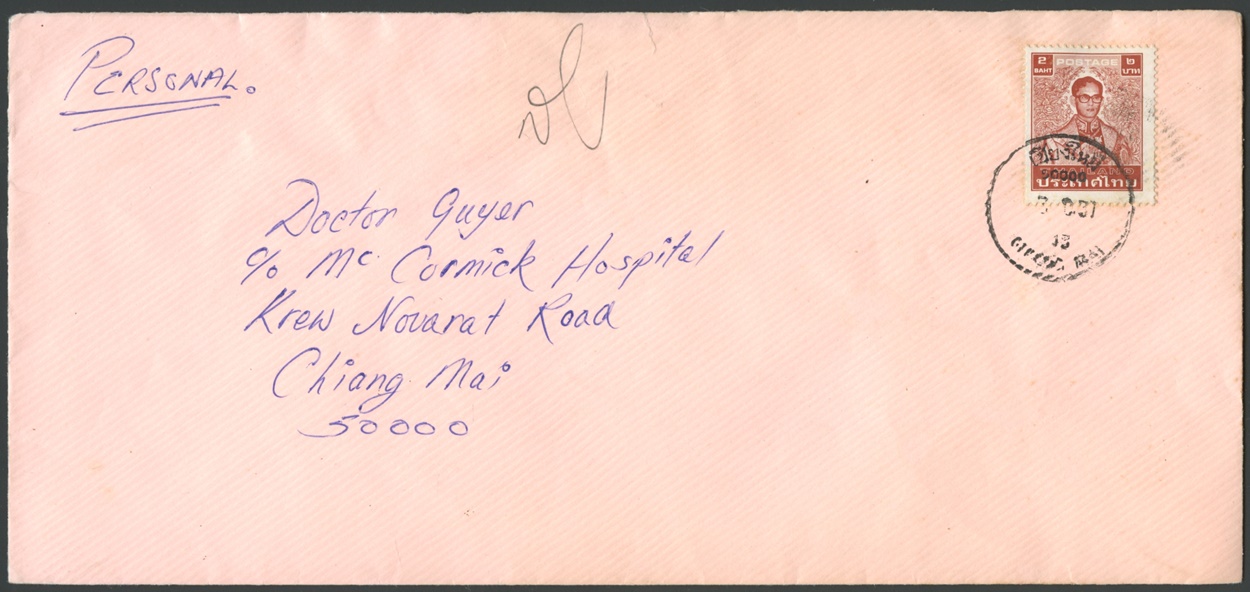 PERSONAL.
2 BAHT
POSTAGE
๒ บาท
THAILAND
ประเทศไทย
เชียงใหม่
CHIANG MAI
Doctor Guyer
c/o Mc Cormick Hospital
Krew Novarat Road
Chiang Mai
50000